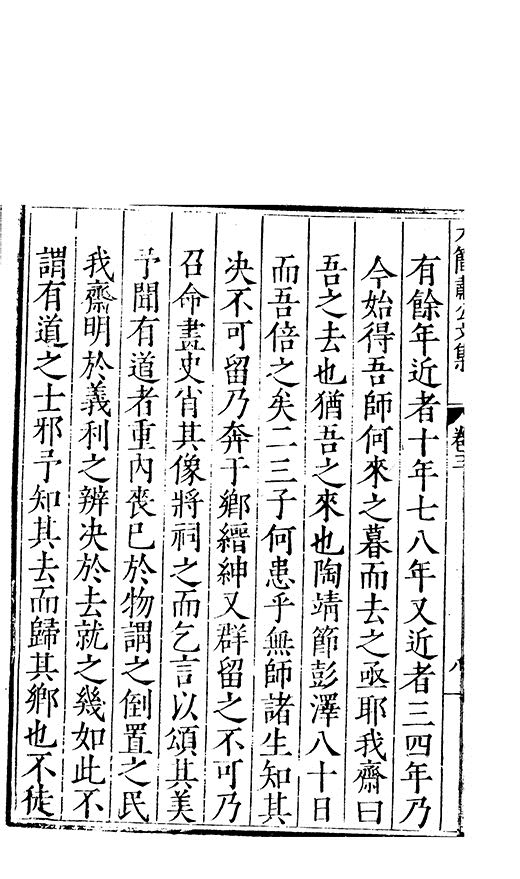 有餘年近者十年七八年又近者三四年乃
今始得吾師何來之暮而去之亟耶我齋曰
吾之去也猶吾之來也陶靖節彭澤八十日
而吾倍之矣二三子何患乎無師諸生知其
决不可留乃奔于鄉縉紳又群留之不可乃
召命畫史肖其像將祠之而乞言以頌其美
予聞有道者重內喪已於物謂之倒置之民
我齋明於義利之辨决於去就之幾如此不
謂有道之士邪予知其去而歸其鄉也不徒